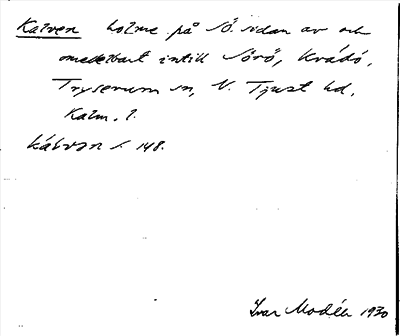 Kalven holme på SÖ. sidan av och
omedelbart intill Sörö, Kvädö,
Tryserum sn, N. Tjust hd,
Kalm. l.
kálvən s. 148.
Ivar Modéer 1930